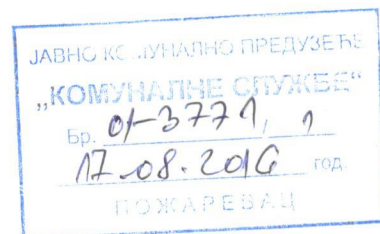 ЈАВНО КОМУНАЛНО ПРЕДУЗЕЋЕ
„КОМУНАЛНЕ СЛУЖБЕ“
Бр. 01-3771, 1
17.08.2016 год.
ПОЖАРЕВАЦ